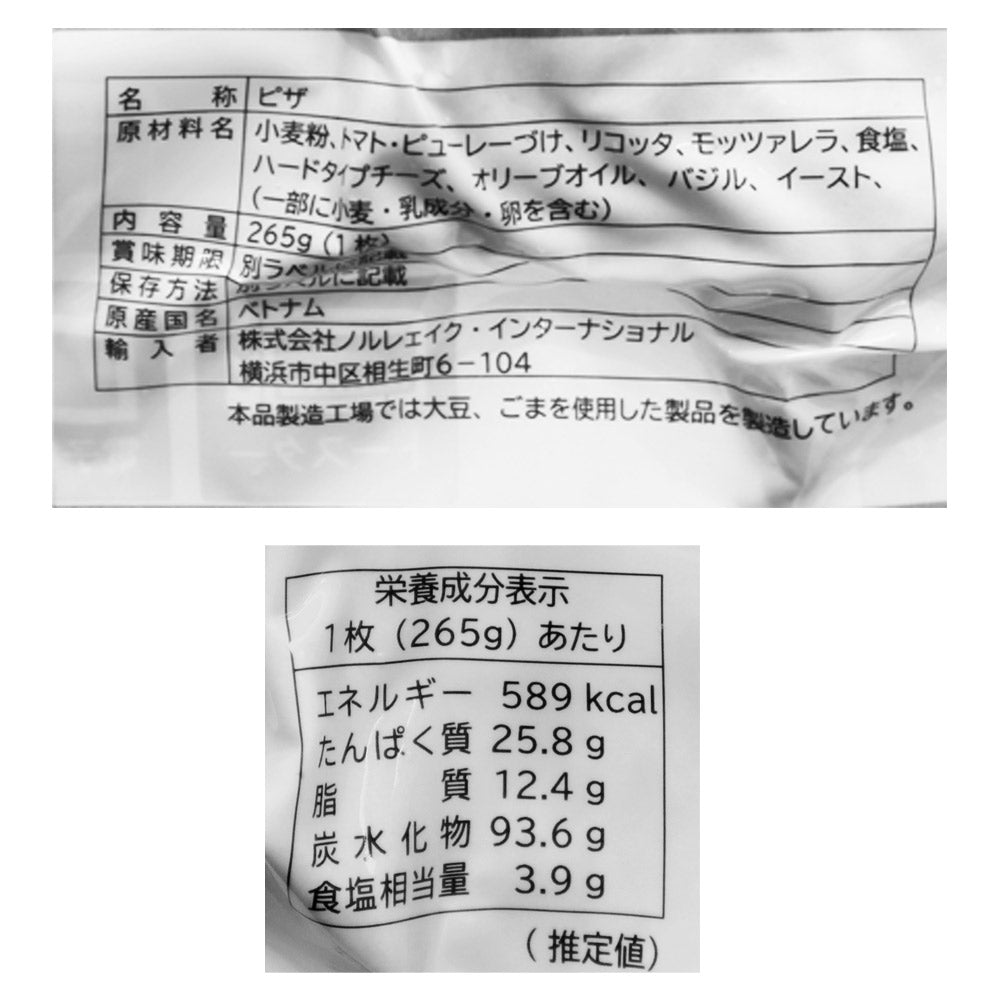 名 称 ピザ
原材料名 小麦粉、トマト・ピューレーづけ、リコッタ、モッツァレラ、食塩、
ハードタイプチーズ、オリーブオイル、バジル、イースト、
(一部に小麦・乳成分・卵を含む)
内容量 265g (1枚)
賞味期限 別ラベルに記載
保存方法 別ラベルに記載
原産国名 ベトナム
輸入者 株式会社ノルレェイク・インターナショナル
横浜市中区相生町6-104
本品製造工場では大豆、ごまを使用した製品を製造しています。
栄養成分表示
1枚 (265g) あたり
エネルギー 589 kcal
たんぱく質 25.8 g
脂質 12.4 g
炭水化物 93.6 g
食塩相当量 3.9 g
(推定値)